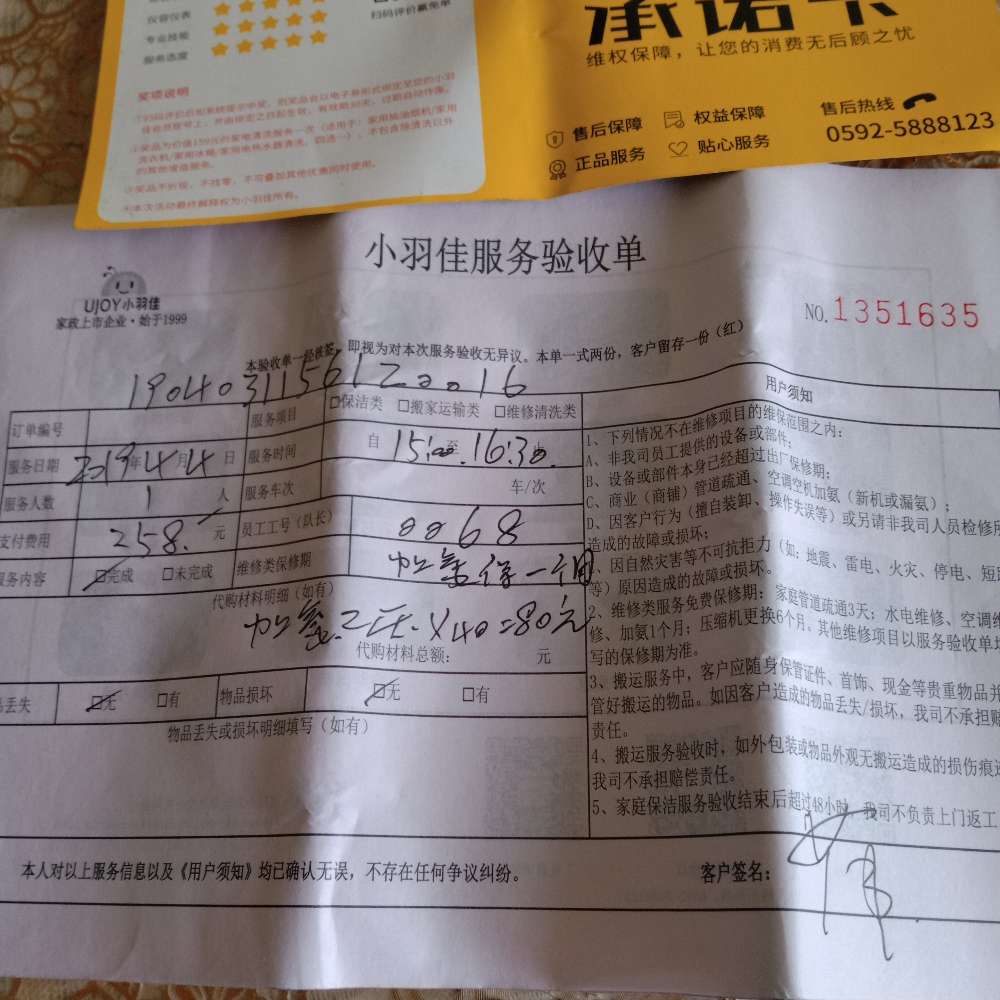 仪容仪表
专业技能
服务态度
扫码评价赢免单
承诺卡
维权保障，让您的消费无后顾之忧
售后保障
权益保障
正品服务
贴心服务
售后热线
0592-5888123
奖项说明
③奖品不折现，不找零，不可叠加其他优惠同时使用。
④本次活动最终解释权为小羽佳所有。
小羽佳服务验收单
UJOY小羽佳
家政上市企业·始于1999
NO.1351635
本验收单一经接签，即视为对本次服务验收无异议。本单一式两份，客户留存一份（红）
订单编号 1904031156120016
服务项目 □保洁类 □搬家运输类 □维修清洗类
服务日期 2019年4月4日
服务时间 自 15:00 至 16:30 止
服务人数 1 人
服务车次 车/次
支付费用 258. 元
员工工号（队长） 0068
服务内容 ☑完成 □未完成
维修类保修期 加氟保一个月
代购材料明细（如有）
加氟.2压.×40=80元
代购材料总额： 元
品丢失 ☑无 □有 物品损坏 ☑无 □有
物品丢失或损坏明细填写（如有）
用户须知
1、下列情况不在维修项目的维保范围之内：
A、非我司员工提供的设备或部件；
B、设备或部件本身已经超过出厂保修期；
C、商业（商铺）管道疏通、空调空机加氨（新机或漏氨）；
D、因客户行为（擅自装卸、操作失误等）或另请非我司人员检修所
造成的故障或损坏；
、因自然灾害等不可抗拒力（如：地震、雷电、火灾、停电、短
等）原因造成的故障或损坏。
2、维修类服务免费保修期：家庭管道疏通3天；水电维修、空调维
修、加氨1个月；压缩机更换6个月。其他维修项目以服务验收单
写的保修期为准。
3、搬运服务中，客户应随身保管证件、首饰、现金等贵重物品并
管好搬运的物品。如因客户造成的物品丢失/损坏，我司不承担
责任。
4、搬运服务验收时，如外包装或物品外观无搬运造成的损伤痕
我司不承担赔偿责任。
5、家庭保洁服务验收结束后超过48小时，我司不负责上门返工
本人对以上服务信息以及《用户须知》均已确认无误，不存在任何争议纠纷。
客户签名：